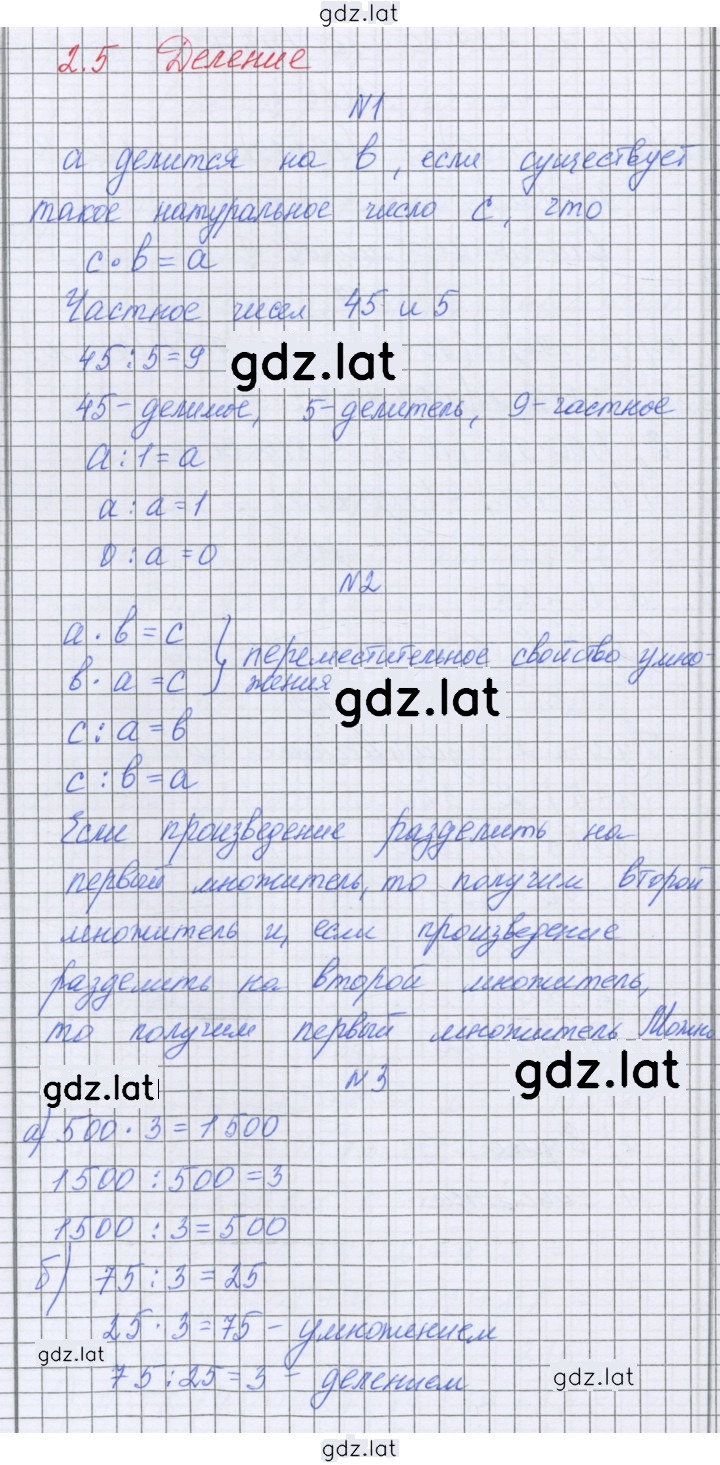 gdz.lat
2.5 Деление
№1
а делится на в, если существует
такое натуральное число с, что
с · в = а
Частное чисел 45 и 5
45 : 5 = 9
gdz.lat
45 - делимое, 5 - делитель, 9 - частное
а : 1 = а
а : а = 1
0 : а = 0
№2
а · в = с
в · а = с } переместительное свойство умно-
жения
gdz.lat
с : а = в
с : в = а
Если произведение разделить на
первый множитель, то получим второй
множитель и, если произведение
разделить на второй множитель,
то получим первый множитель. Можно
gdz.lat
№3
gdz.lat
а) 500 · 3 = 1500
1500 : 500 = 3
1500 : 3 = 500
б) 75 : 3 = 25
25 · 3 = 75 - умножением
gdz.lat
75 : 25 = 3 - делением
gdz.lat
gdz.lat